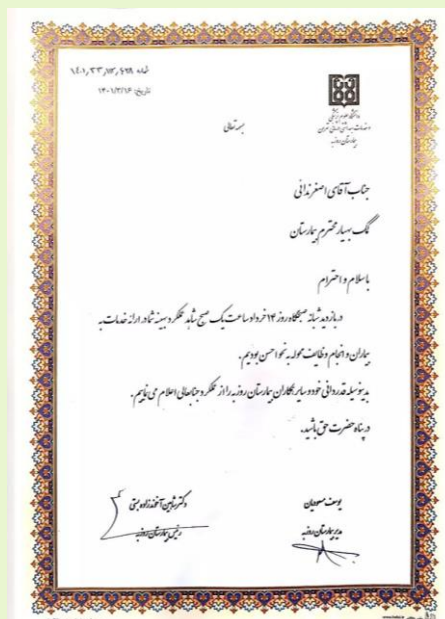 شماره ۱۴۰۱٫۳۳٫۱۷٫۶۹۹
تاریخ: ۱۴۰۱/۳/۱۶
دانشگاه علوم پزشکی
و خدمات بهداشتی درمانی تهران
بیمارستان روزبه
بسمه تعالی
جناب آقای اصغر ندائی
کمک بهیار محترم بیمارستان
باسلام و احترام
در بازدید شبانه صبحگاه روز ۱۴ خرداد ساعت یک صبح شاهد عملکرد بهینه شما در ارائه خدمات به
بیماران و انجام وظایف محوله به نحو احسن بودیم.
بدینوسیله قدردانی خود و سایر همکاران بیمارستان روزبه را از عملکرد جنابعالی اعلام می نماییم.
در پناه حضرت حق باشید.
یوسف مسعودیان
مدیر بیمارستان روزبه
دکتر شاهین آخوندزاده بستی
رئیس بیمارستان روزبه